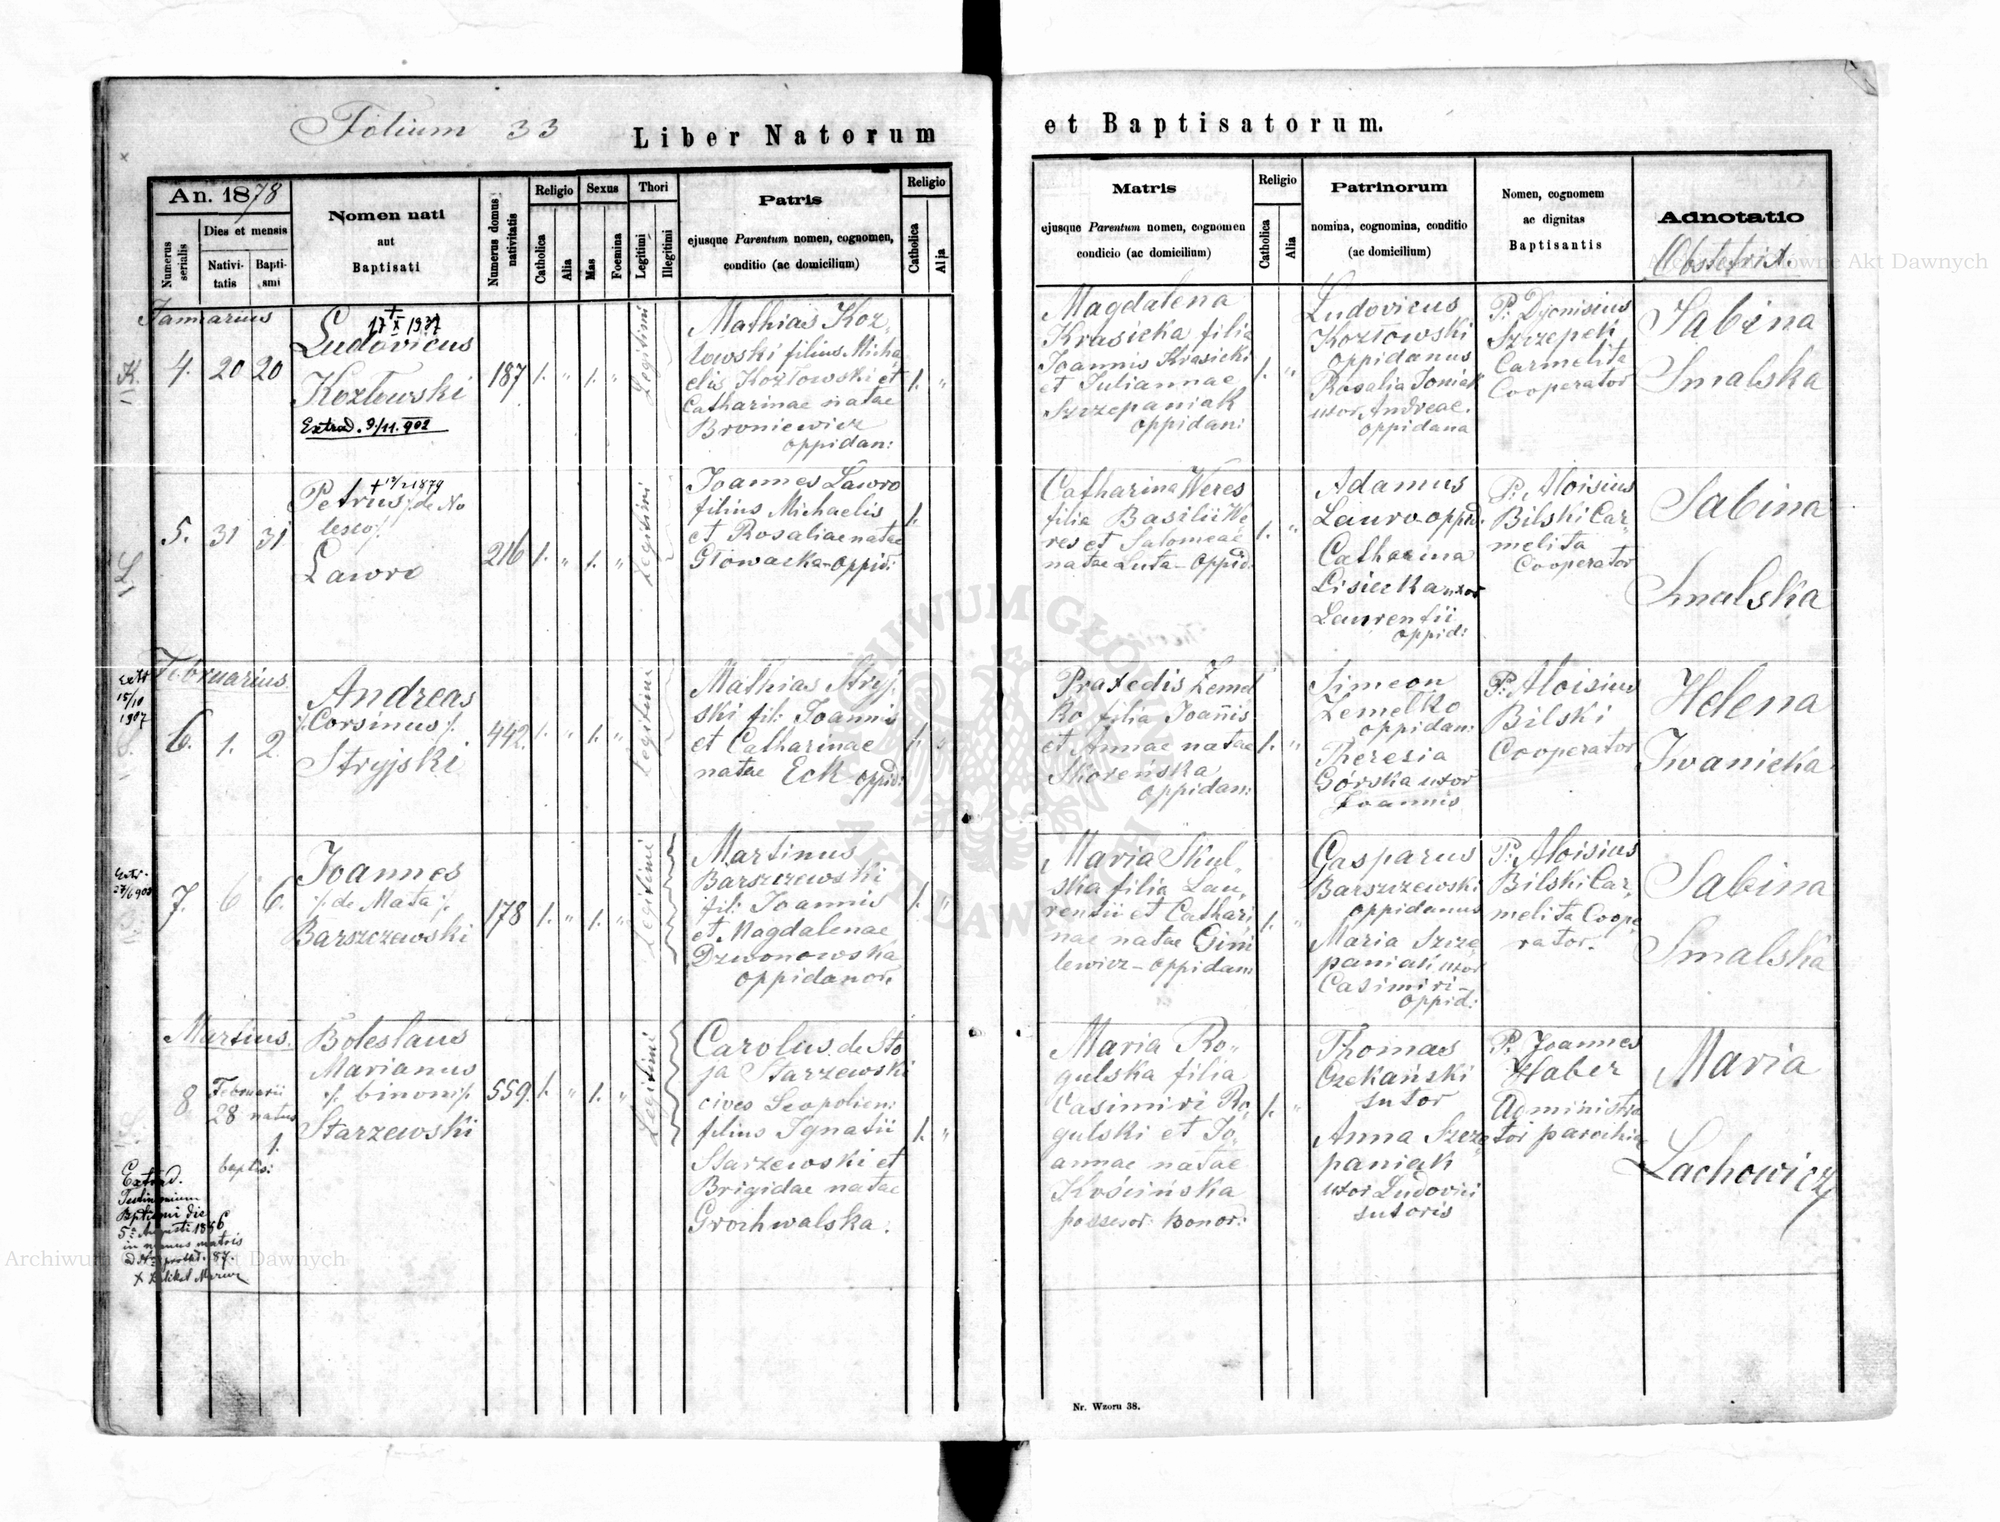 Folium 33
Liber Natorum
et Baptisatorum.
An. 1878
Numerus serialis
Dies et mensis
Nativitatis
Baptismi
Nomen nati
aut
Baptisati
Numerus domus nativitatis
Religio
Catholica
Alia
Sexus
Mas
Foemina
Thori
Legitimi
Illegitimi
Patris
ejusque Parentum nomen, cognomen,
conditio (ac domicilium)
Religio
Catholica
Alja
Matris
ejusque Parentum nomen, cognomen
condicio (ac domicilium)
Religio
Catholica
Alia
Patrinorum
nomina, cognomina, conditio
(ac domicilium)
Nomen, cognomem
ac dignitas
Baptisantis
Adnotatio
Obstetrix.
Januarius
K.
4. 20 20
17 X 1937
Ludovicus
Kozłowski
Extrad. 9/11.902
187 1. " 1. "
Legitimi
Mathias Koz,
łowski filius Micha,
elis Kozłowski et
Catharinae natae
Broniewicz
oppidan:
1. "
Magdalena
Krasicka filia
Joannis Krasicki
et Juliannae
Szczepaniak
oppidan:
1. "
Ludovicus
Kozłowski
oppidanus
Rosalia Toniak
uxor Andreae.
oppidana
P: Dyonisius
Szczepek
Carmelita
Cooperator
Sabina
Smalska
L.
5. 31 31
Petrus /: de No
lesco/.
Lawro
216 1. " 1. "
Legitimi
Joannes Lawro
filius Michaelis
et Rosaliae natae
Głowacka - oppid:
1.
Catharina Weres
filia Basilii We
res et Salomeae
natae Luta - oppid:
1. "
Adamus
Lauro oppid.
Catharina
Lisiecka uxor
Laurentii
oppid:
P: Aloisius
Bilski Car,
melita
Cooperator
Sabina
Smalska
Februarius
Extr
15/10
1907
6. 1. 2.
Andreas
/: Corsinus /.
Stryjski
442. 1. " 1. "
Legitimi
Mathias Stryj,
ski fil: Joannis
et Catharinae
natae Eck oppid:
1. "
Praxedis Zemeł
ko filia Joannis
et Annae natae
Skoreńska
oppidan:
1. "
Simeon
Zemełko
oppidan:
Theresia
Górska uxor
Joannis
P: Aloisius
Bilski
Cooperator
Helena
Iwanicka
Extr.
7. 6 6.
Joannes
/: de Mata /.
Barszczewski
178 1. " 1. "
Legitimi
Martinus
Barszczewski
fil: Joannis
et Magdalenae
Dzwonowska
oppidanor.
1. "
Maria Skul,
ska filia Lau,
rentii et Cathari,
nae natae
lewicz - oppidam
1. "
Gasparus
Barszczewski
oppidanus
Maria Szcze
paniak uxor
Casimiri -
oppid:
P: Aloisius
Bilski Car,
melita Coope
rator.
Sabina
Smalska
Martius.
8. Februarii
28 natus
1.
baptis:
Boleslaus
Marianus
/. binomi/.
Starzewski
559. 1. " 1. "
Legitimi
Carolus de Sto
ja Starzewski
cives Leopolien:
filius Ignatii
Starzewski et
Brigidae natae
Grochwalska.
1. "
Maria Ro,,
gulska filia
Casimiri Ro,
gulski et Jo,
annae natae
Kościńska
possesor: bonor:
1. "
Thomas
Czekański
sutor
Anna Szcze
paniak
uxor Ludovici
sutoris
P: Joannes
Haber
Administra
tor parochiae
Maria
Lachowicz
Extrad.
Testimonium
Bptismi die
5ta Augusti 1886
in manus matris
Nr. Wzoru 38.
ARCHIWUM GŁÓWNE AKT DAWNYCH
Archiwum Główne Akt Dawnych
Archiwum Główne Akt Dawnych